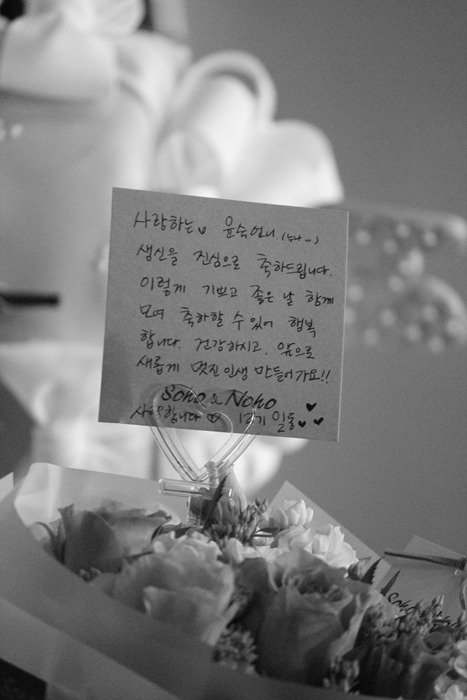 사랑하는♡ 윤숙언니 (누나 ~)
생신을 진심으로 축하드립니다.
이렇게 기쁘고 좋은 날 함께
모여 축하할 수 있어 행복
합니다. 건강하시고, 앞으로
새롭게 멋진인생 만들어가요!!
Soho & Noho
사랑합니다 ♡ 12기 일동 ♥♥♥